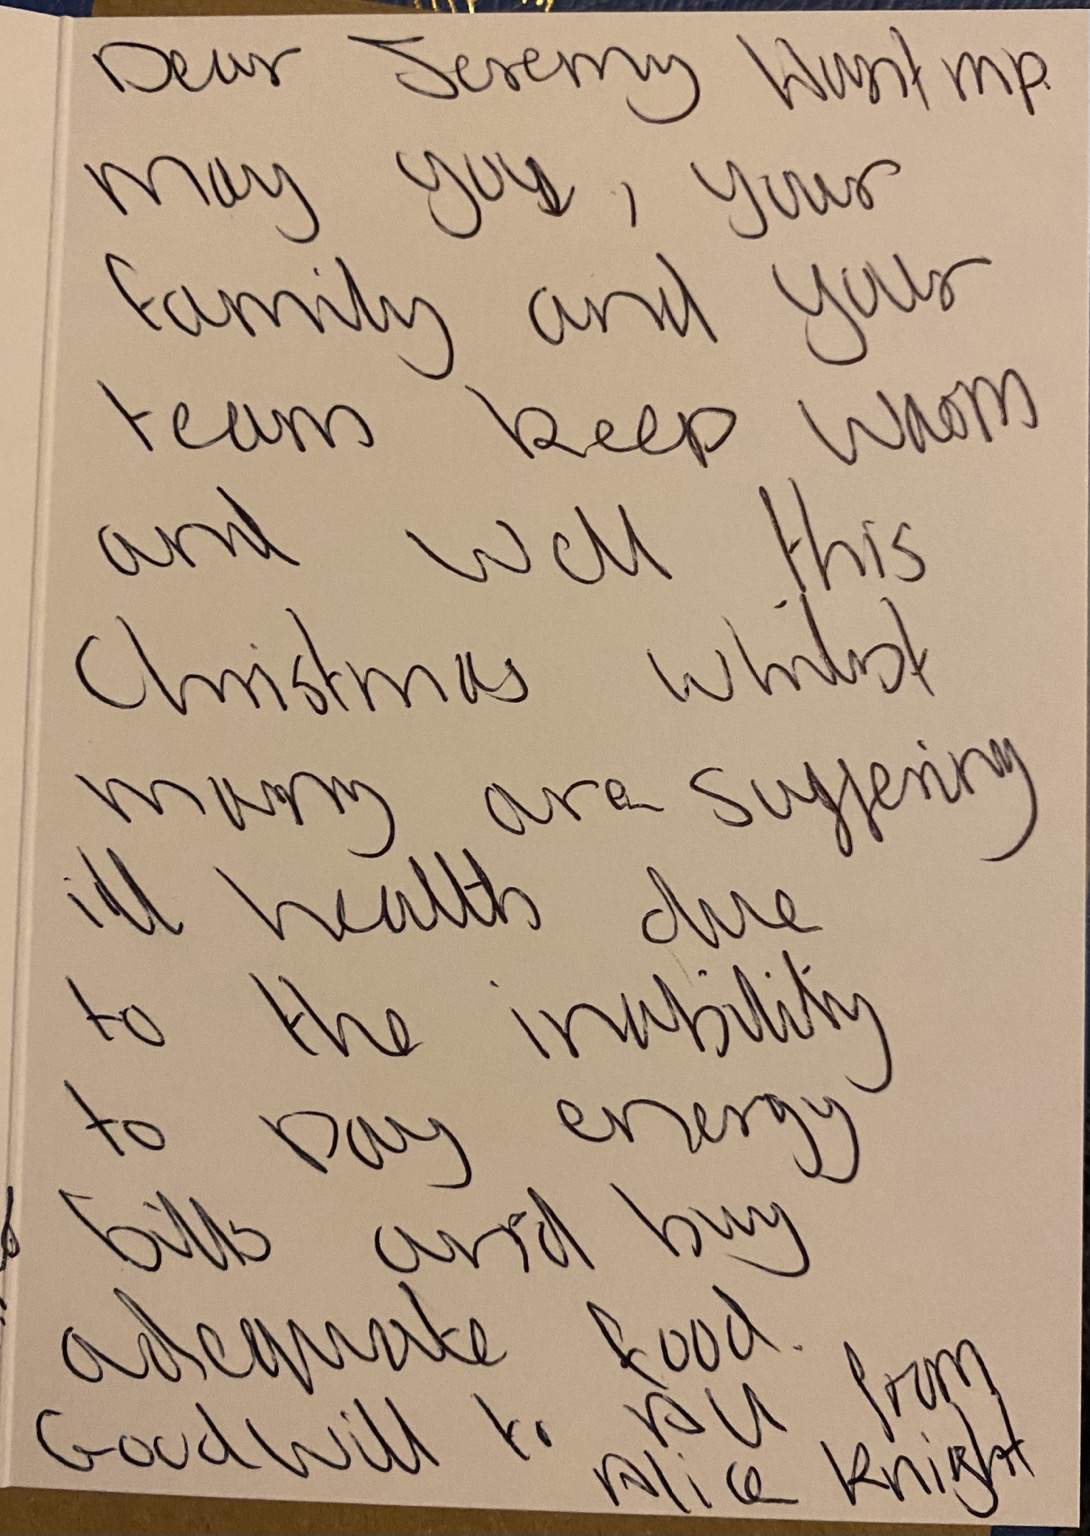 Dear Jeremy Hunt mp.
may you, your
family and your
team keep warm
and well this
Christmas whilst
many are suffering
ill health due
to the inability
to pay energy
bills and buy
adequate food.
Goodwill to All from
Alice Knight